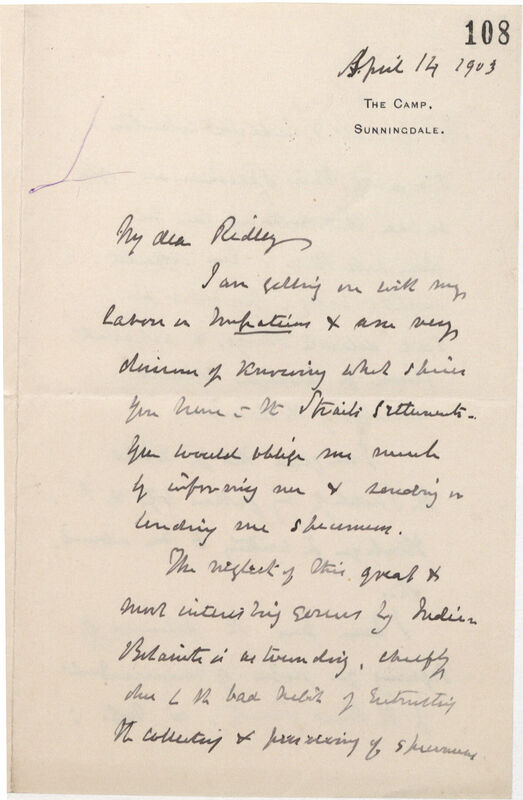 108
April 14 1903
THE CAMP,
SUNNINGDALE.
My dear Ridley
I am getting on with my
labors on Impatiens & am very
desirous of knowing what species
you have in the Straits Settlements.
You would oblige me much
by informing me & sending or
lending me specimens.
The neglect of this great &
most interesting genus by Indian
Botanists is astounding, chiefly
due to the bad habit of entrusting
the collecting & preserving of specimens